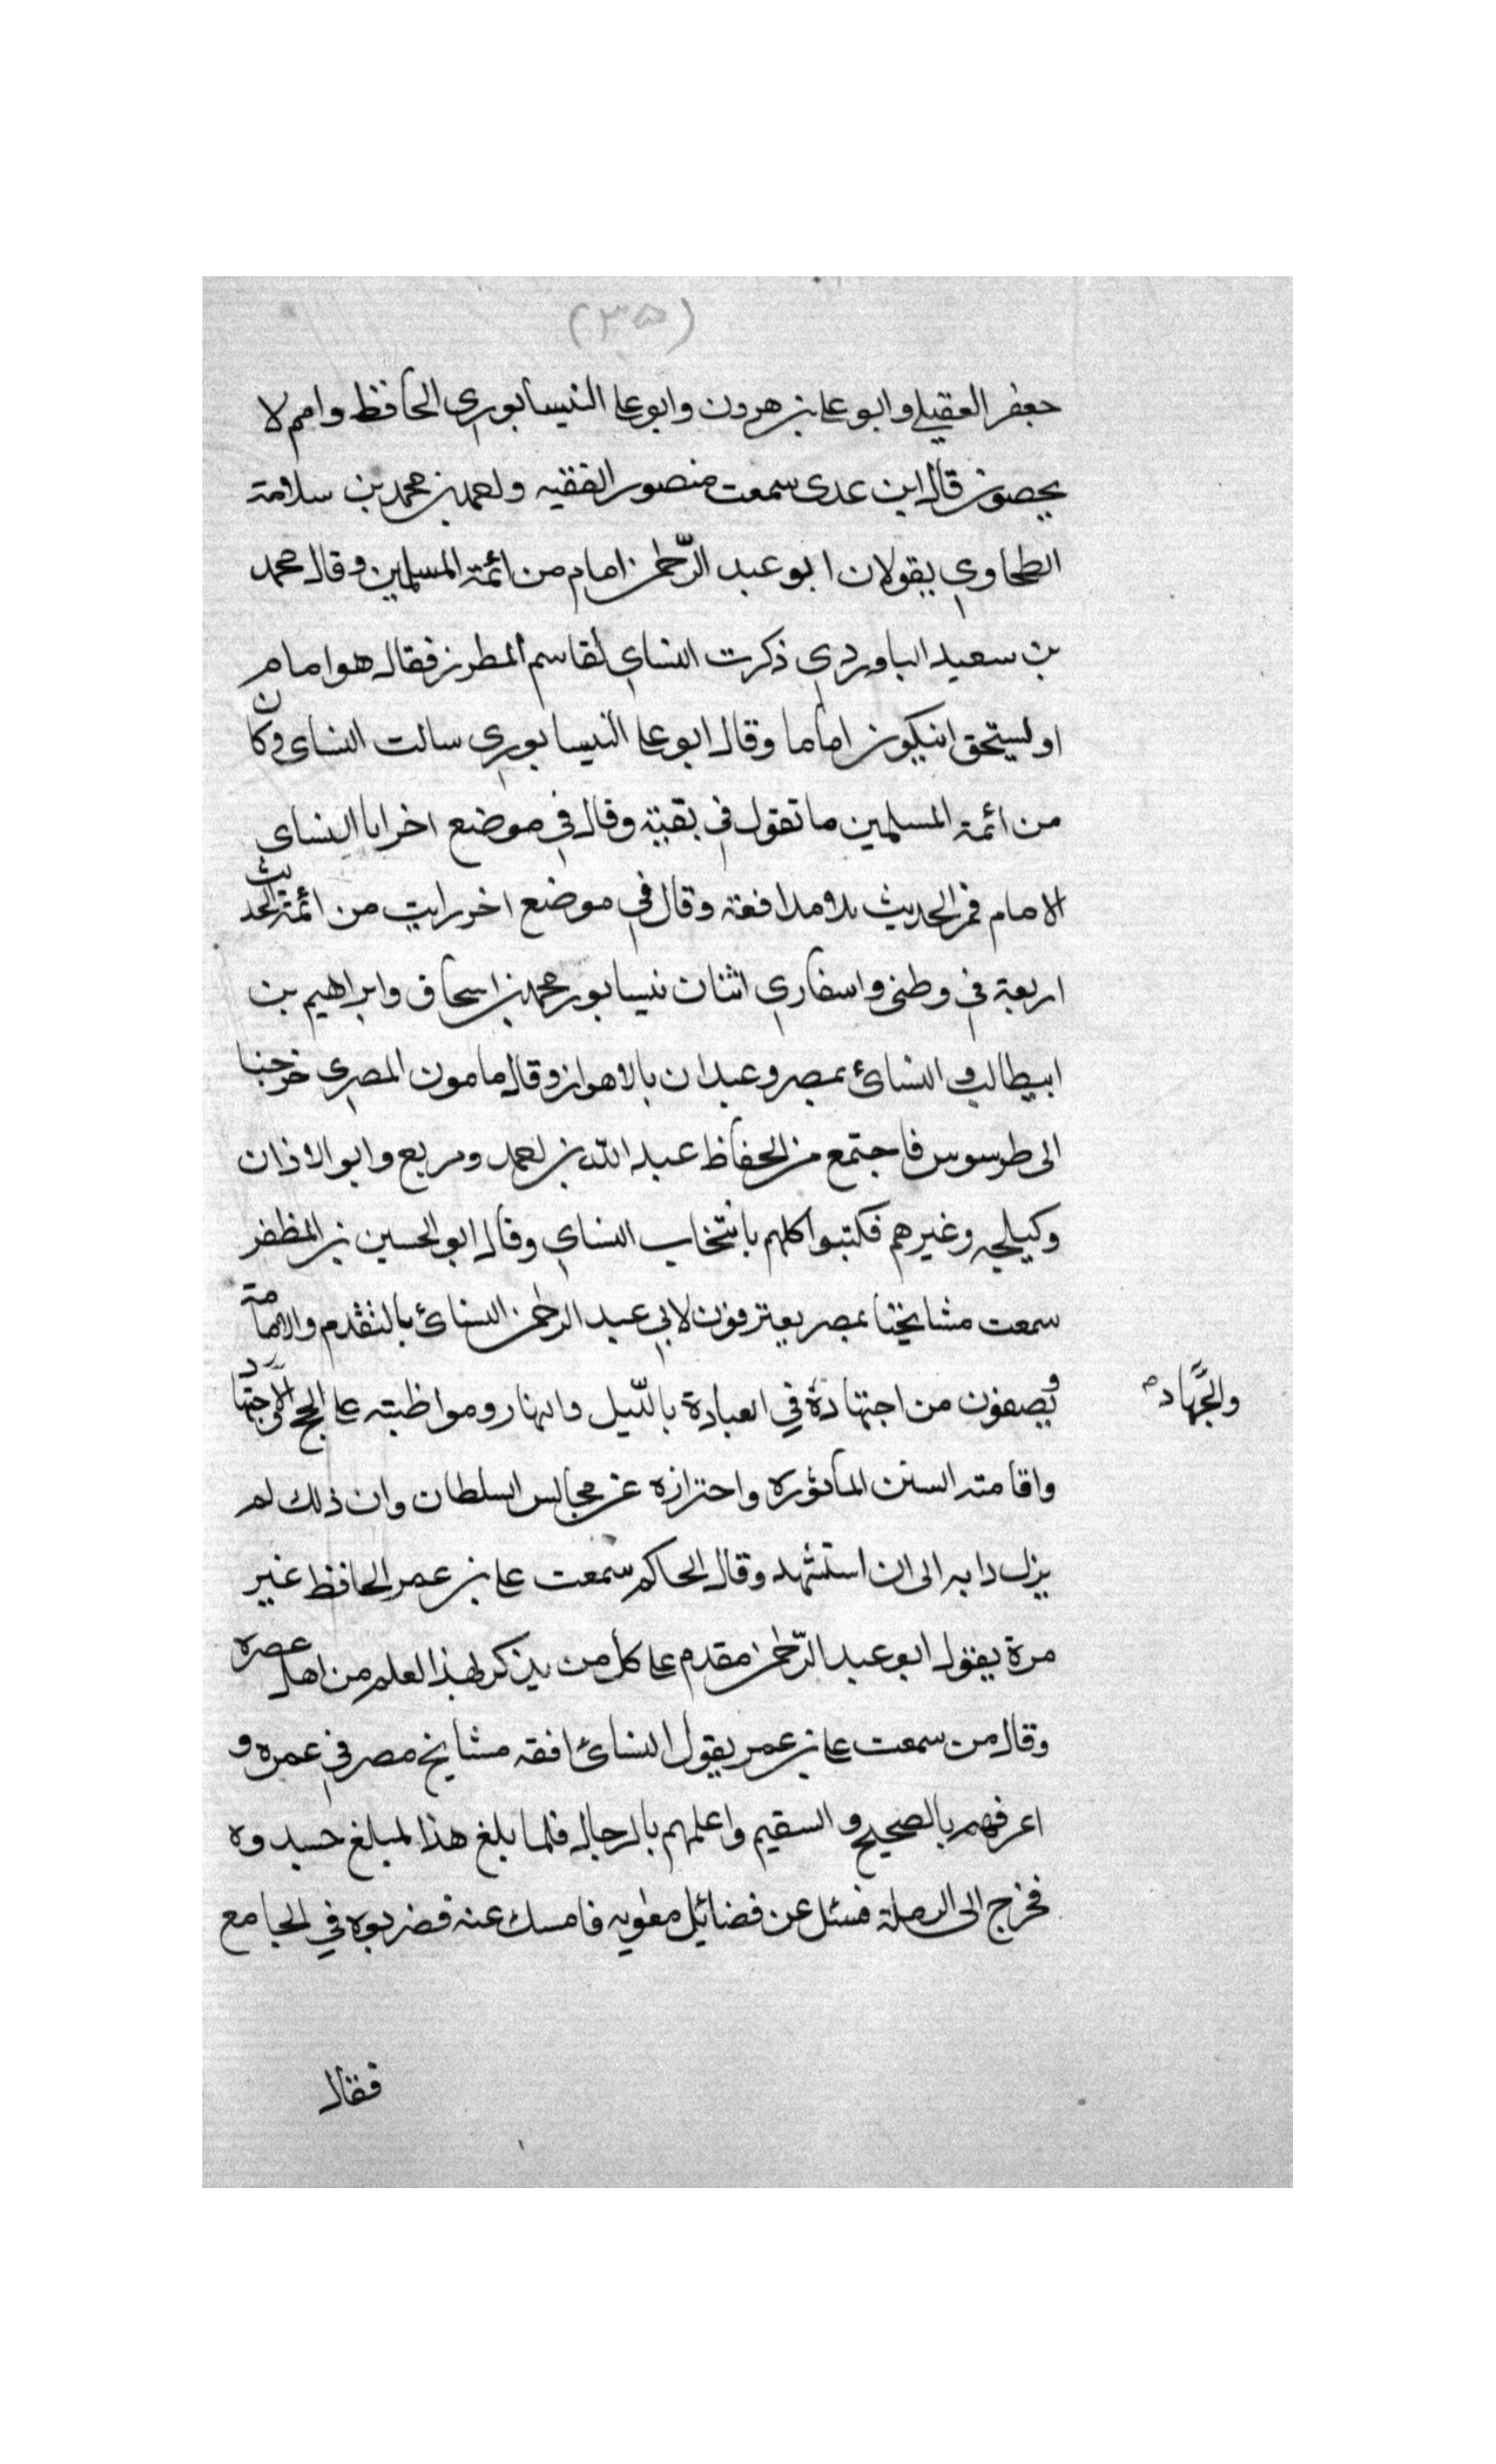 (٣٥)
جعفر العقيلي وابو على بن هرون وابو على النيسابوري الحافظ وامم لا
يحصون قال ابن عدى سمعت منصور الفقيه واحمد بن محمد بن سلامة
الطحاوي يقولان ابو عبد الرّحمن امام من ائمة المسلمين وقال محمد
بن سعيد الباوردي ذكرت النساي لقاسم المطرز فقال هو امام
او يستحق ان يكون اماما وقال ابو على النيسابوري سالت النساى وكان
من ائمة المسلمين ما تقول في بقية وقال في موضع اخر انا النساى
الامام في الحديث بلا مدافعة وقال في موضع اخر رايت من ائمة الحديث
اربعة في وطني واسفاري اثنان نيسابور محمد بن اسحاق وابراهيم بن
ابي طالب والنسائ بمصر وعبدان بالاهواز وقال مامون المصرى خرجنا
الى طرسوس فاجتمع من الحفاظ عبد الله بن احمد ومربع وابو الاذان
وكيلجه وغيرهم فكتبوا كلهم بانتخاب النساي وقال ابو الحسين بن المظفر
سمعت مشايخنا بمصر يعترفون لابي عبد الرحمن النسائ بالتقدم والامامة
ويصفون من اجتهاده في العبادة بالليل والنهار ومواظبته على الحج والاجتهاد
والجهاد
واقامته السنن المأثوره واحترازه عن مجالس السلطان وان ذلك لم
يزل دابه الى ان استشهد وقال الحاكم سمعت على بن عمر الحافظ غير
مرة يقول ابو عبد الرّحمن مقدم على كل من يذكر بهذا العلم من اهل عصره
وقال من سمعت على بن عمر يقول النسائ افقه مشايخ مصر في عمره و
اعرفهم بالصحيح والسقيم واعلمهم بالرجال فلما بلغ هذا لمبلغ حسدوه
فخرج الى الرملة فسئل عن فضائل معويه فامسك عنه فضربوه في الجامع
فقال